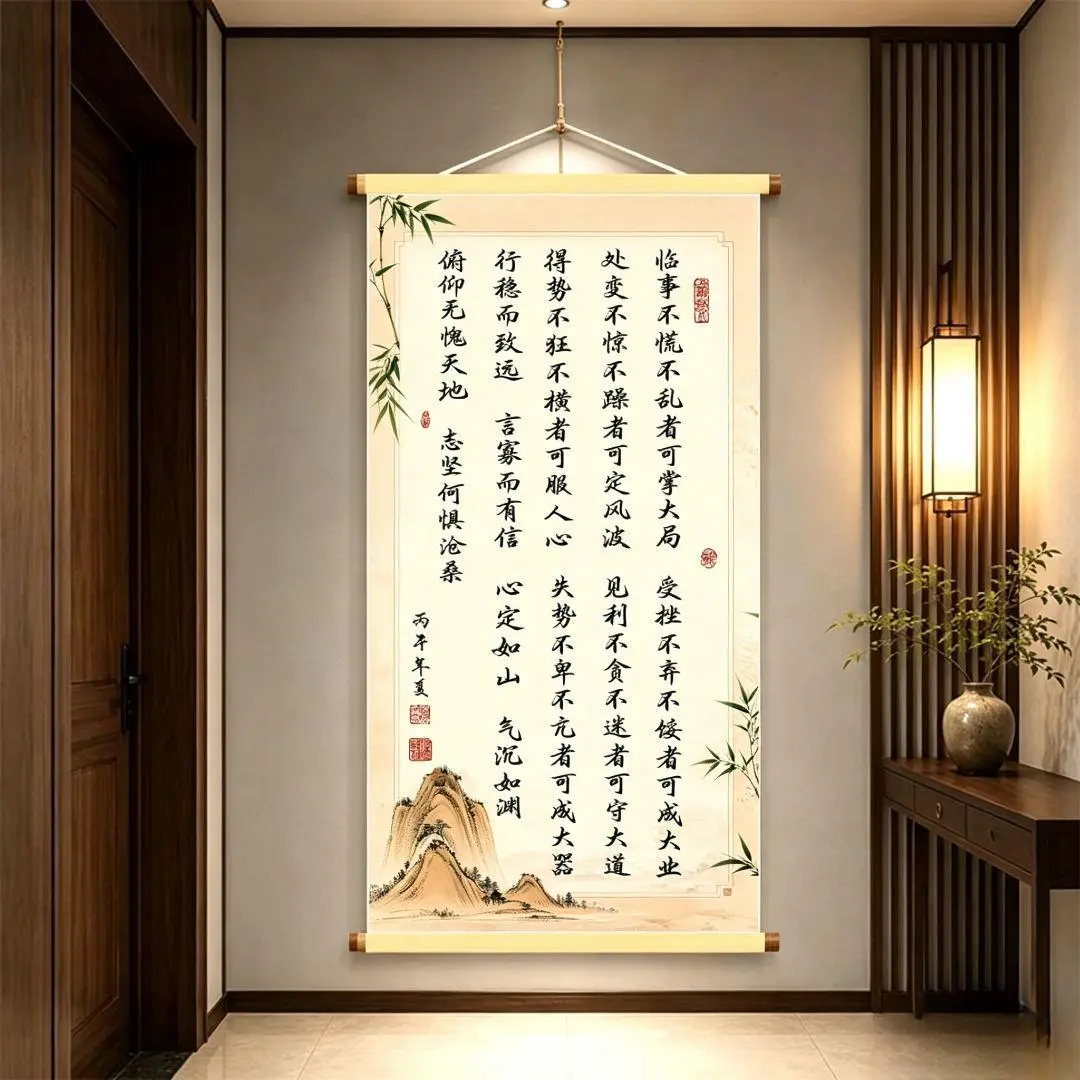 临事不慌不乱者可掌大局 受挫不弃不馁者可成大业
处变不惊不躁者可定风波 见利不贪不迷者可守大道
得势不狂不横者可服人心 失势不卑不亢者可成大器
行稳而致远 言寡而有信 心定如山 气沉如渊
俯仰无愧天地 志坚何惧沧桑
丙午年夏